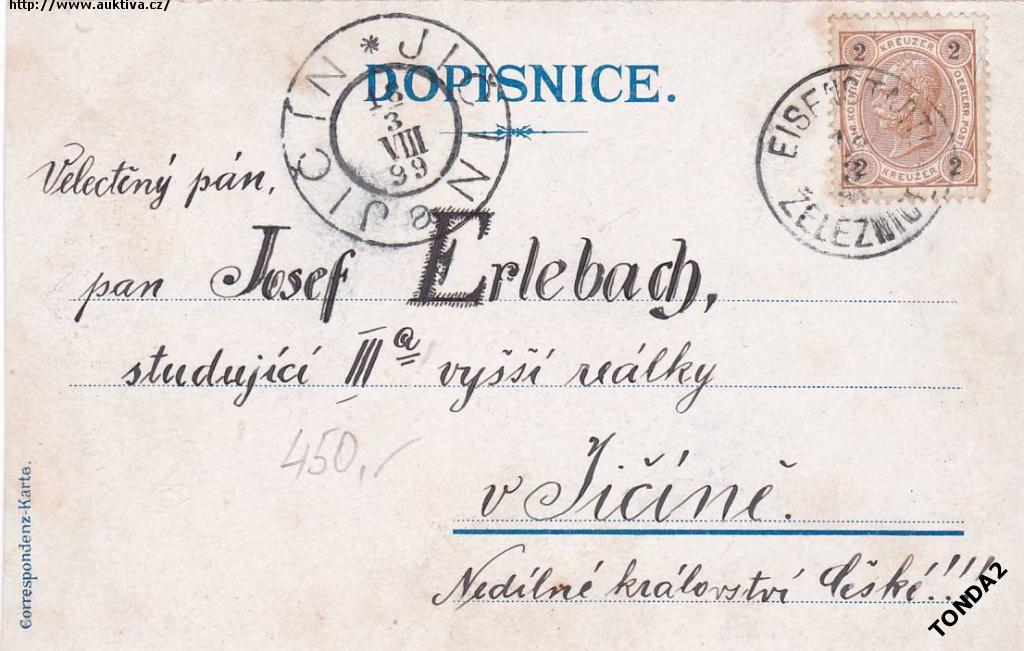 http://www.auktiva.cz/
DOPISNICE.
* JIČÍN & JIČÍN
3
VIII
99
KREUZER
2 2
2 2
KREUZER
ŽELEZNICE
Velectěný pán,
pan Josef Erlebach,
studující IIIa vyšší reálky
450,-
v Jičíně.
Nedílné království České!!!
Correspondenz-Karte.
TONDA2